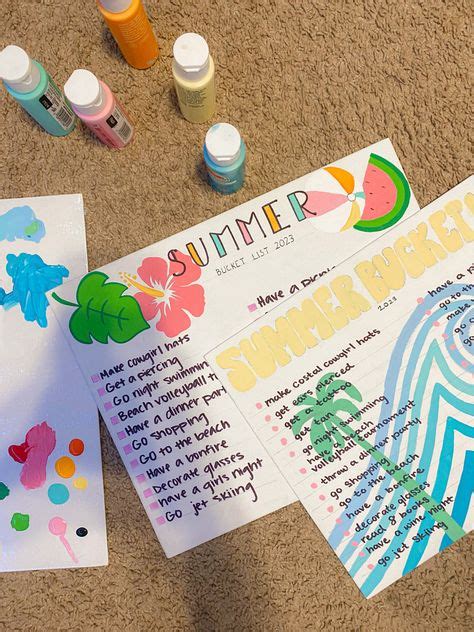 SUMMER
BUCKET LIST 2023
Have a
Make cowgirl hats
Get a piercing
Go night swimming
Beach volleyball
Have a dinner
Go shopping
Go to the beach
Have a bonfire
Decorate glasses
have a girls night
Go jet Skiing
SUMMER BUCKET
2023
make costal cowgirl hats
get ears pierced
get a tattoo
get tan
go night swimming
have a beach
volleyball tournament
throw a dinner party
go shopping
go to the beach
have a bonfire
decorate glasses
read 8 books
have a wine night
go jet Skiing
have a
go to
make
go